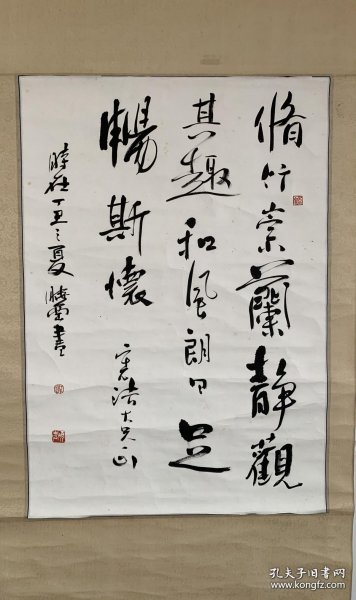 脩竹崇蘭靜觀
其趣和風朗日足
暢斯懷
法大兄正
時在丁丑之夏曉雲書
孔夫子旧书网
www.kongfz.com